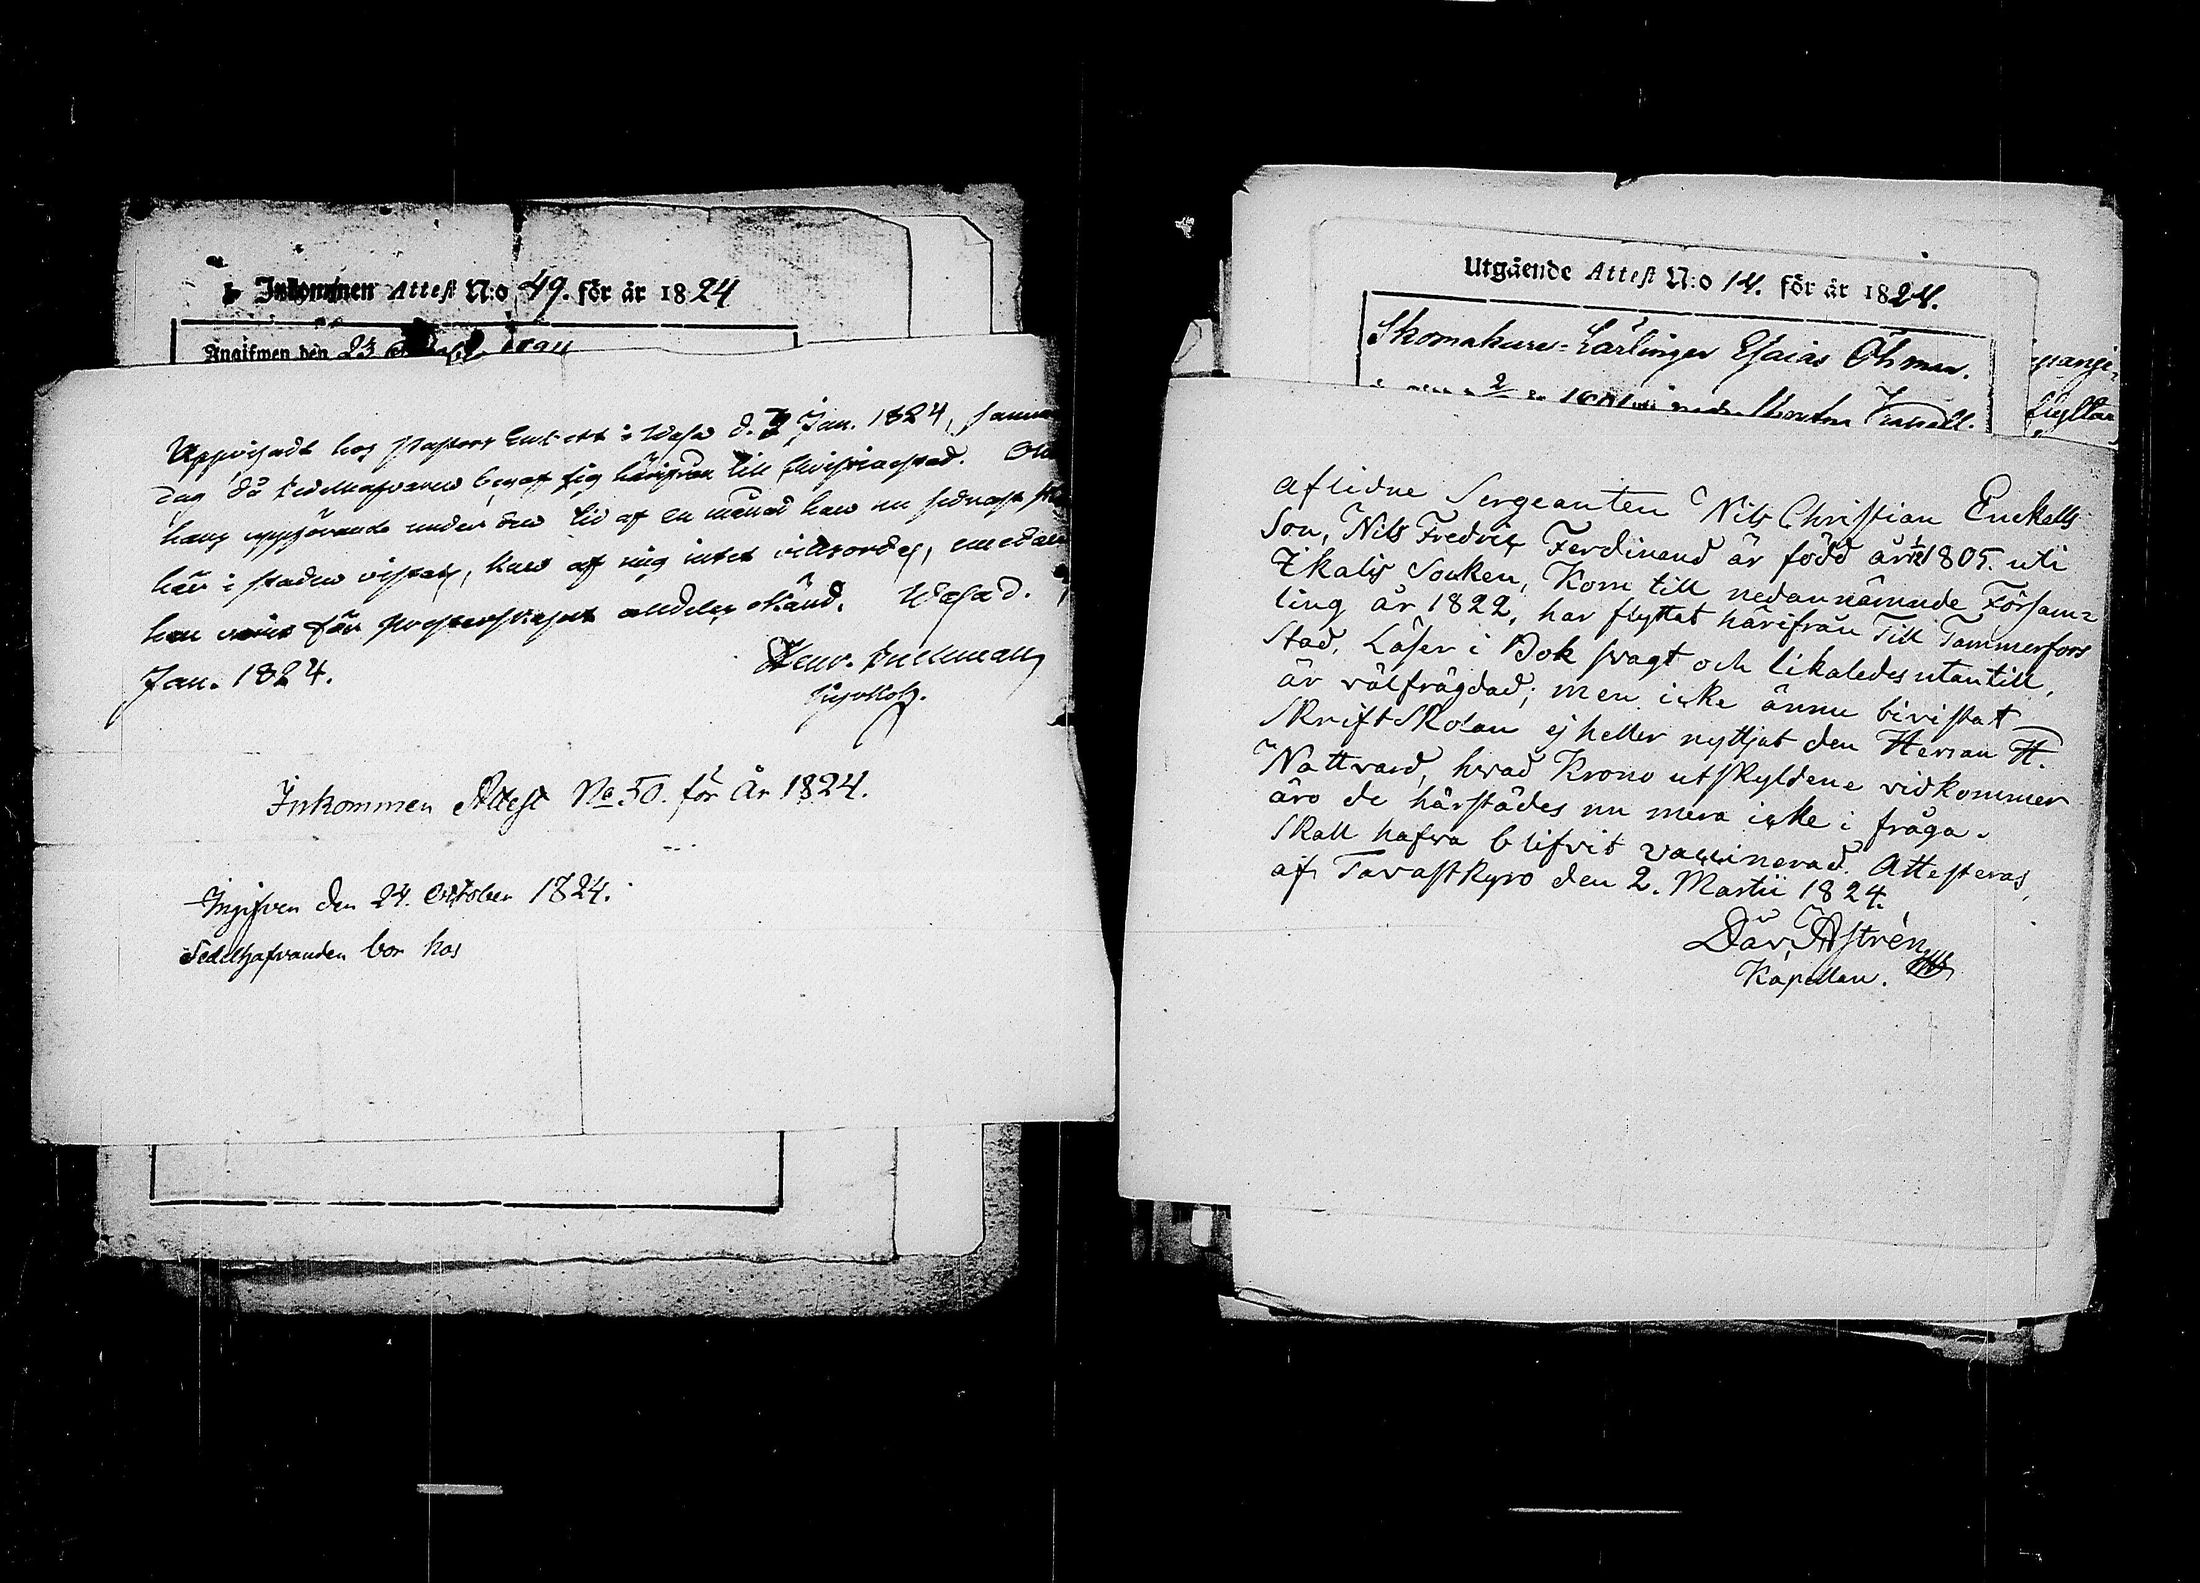 Inkommen Attest N:o 49. för år 1824
Angifwen den 23
Uppvisadt hos Pastors Embetet i Wasa d. 3 Jan. 1824, samma
dag då sedelhafvaren begaf sig härifrån till Christinæstad. Om
hans uppförande under den tid af en månad han nu sednast
här i staden vistats, kan af mig intet vittsordas, emedan
han varit för Presterskapet alldeles okänd. Wasa d.
Jan. 1824.
Henr.
Inkommen Attest No 50. för År 1824.
Ingifven den 24. October 1824.
Sedelhafvanden bor hos
Utgående Attest N:o 14. för år 1824.
Skomakare-Lärlingen Esaias Öhman.
flyttar
Aflidne Sergeanten Nils Christian Enckells
Son, Nils Fredric Ferdinand är född år 1805. uti
Ikalis Socken, Kom till nedannämnde Försam=
ling år 1822, har flyttat härifrån Till Tammerfors
Stad, Läser i Bok svagt och likaledes utantill,
är välfrägdad; men icke ännu bivistat
Skriftskolan ej heller nyttjat den Herran H.
Nattvard, hvad Krono utskyldene vidkommer
äro de härstädes nu mera icke i fråga.
Skall hafva blifvit vaccinerad. Attesteras
af Tavastkyro den 2. Martii 1824.
Dav. Åstrén
Kapellan.